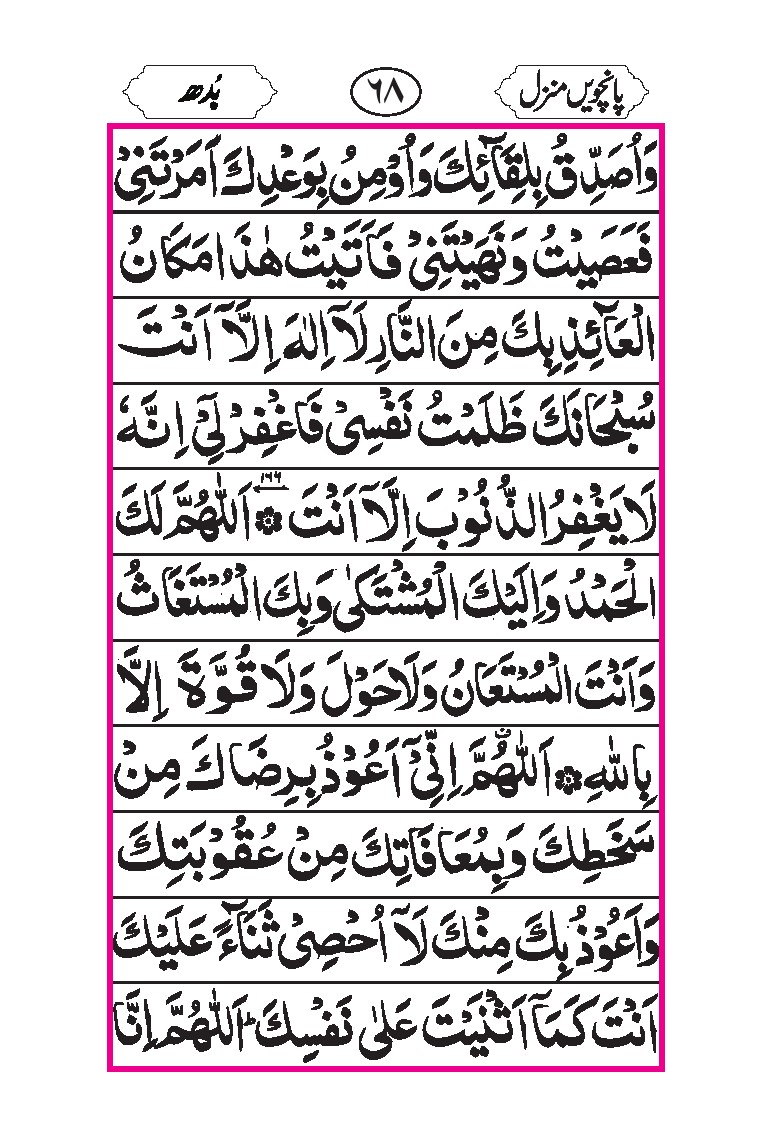 پانچویں منزل ٦٨ بُدھ
وَاُصَدِّقُ بِلِقَآئِكَ وَاُوْمِنُ بِوَعْدِكَ اَمَرْتَنِیْ
فَعَصَيْتُ وَنَهَيْتَنِیْ فَاَتَيْتُ هٰذَا مَكَانُ
الْعَآئِذِ بِكَ مِنَ النَّارِ لَآ اِلٰهَ اِلَّآ اَنْتَ
سُبْحَانَكَ ظَلَمْتُ نَفْسِیْ فَاغْفِرْ لِیْٓ اِنَّهٗ
لَا يَغْفِرُ الذُّنُوْبَ اِلَّآ اَنْتَ ۞ ١٦٦ اَللّٰهُمَّ لَكَ
الْحَمْدُ وَاِلَيْكَ الْمُشْتَكٰی وَبِكَ الْمُسْتَغَاثُ
وَاَنْتَ الْمُسْتَعَانُ وَلَا حَوْلَ وَلَا قُوَّةَ اِلَّا
بِاللّٰهِ ۞ اَللّٰهُمَّ اِنِّیْٓ اَعُوْذُ بِرِضَاكَ مِنْ
سَخَطِكَ وَبِمُعَافَاتِكَ مِنْ عُقُوْبَتِكَ
وَاَعُوْذُ بِكَ مِنْكَ لَآ اُحْصِیْ ثَنَآءً عَلَيْكَ
اَنْتَ كَمَآ اَثْنَيْتَ عَلٰی نَفْسِكَ ؕ اَللّٰهُمَّ اِنَّا